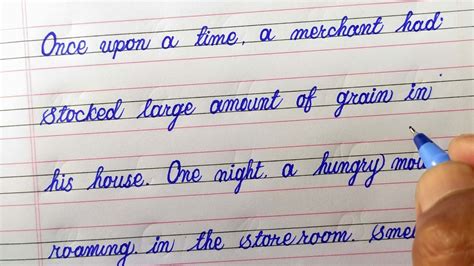 Once upon a time, a merchant had
stocked large amount of grain in
his house. One night, a hungry
roaming. in the store room.